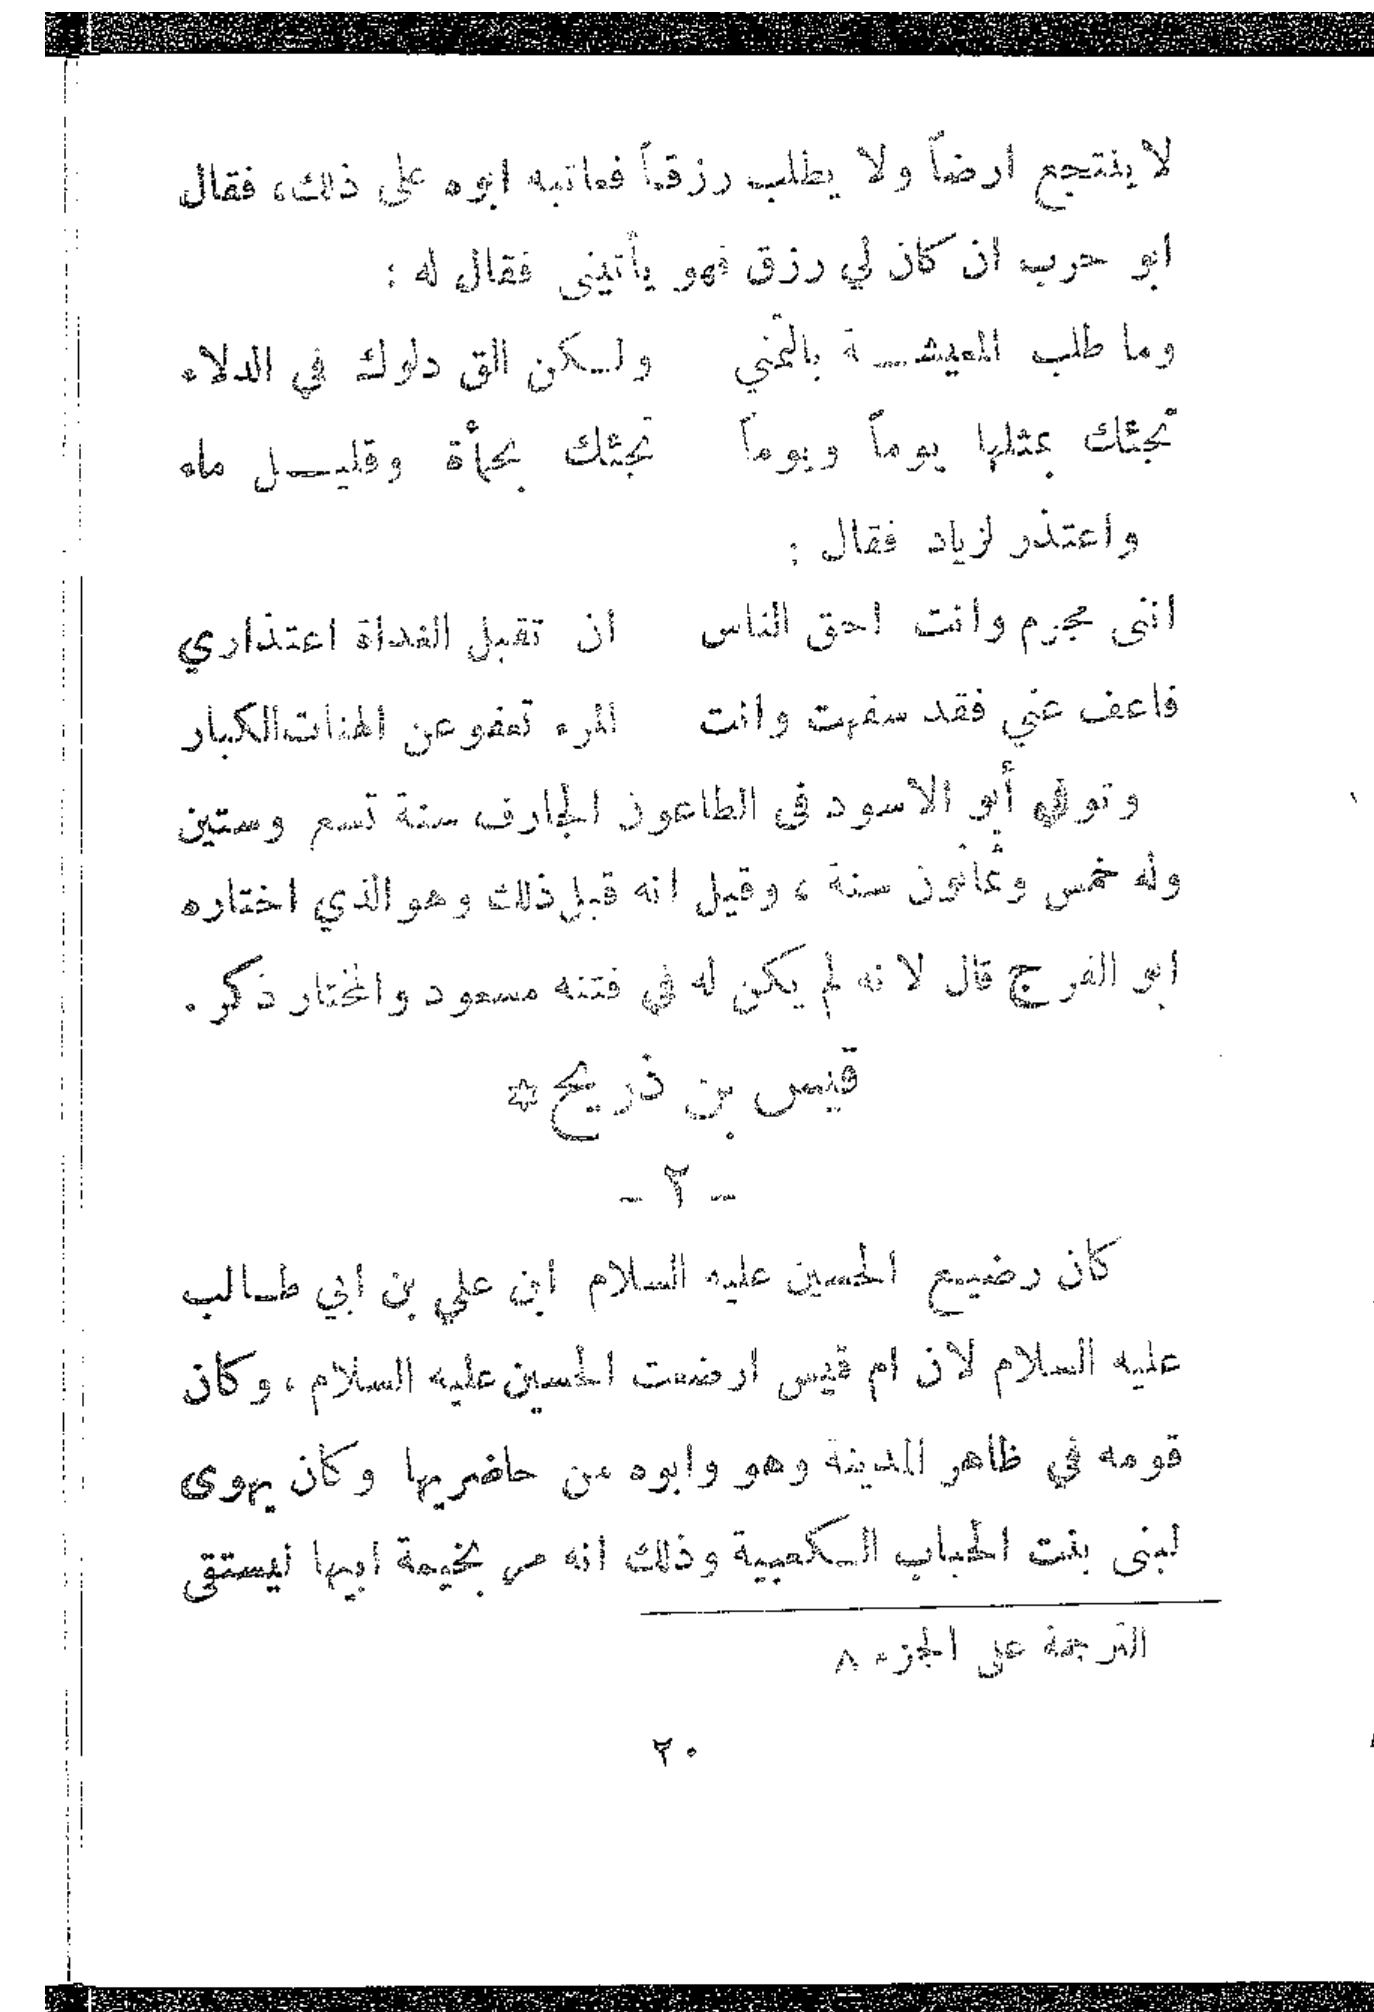 لا ينتجع ارضاً ولا يطلب رزقاً فعاتبه ابوه على ذلك، فقال
ابو حرب ان كان لي رزق فهو يأتيني فقال له :
وما طلب المعيشـة بالتمني ولـكن الق دلوك في الدلاء
تجئك بمثلها يوماً ويوماً تجئك بحمأة وقليـل ماء
واعتذر لزياد فقال :
انني مجرم وانت احق الناس ان تقبل الغداة اعتذاري
فاعف عني فقد سفهت وانت المرء تعفو عن الهنات الكبار
وتوفي أبو الاسود فى الطاعون الجارف سنة تسع وستين
وله خمس وثمانون سنة ، وقيل انه قبل ذلك وهو الذي اختاره
ابو الفرج قال لانه لم يكن له في فتنه مسعود والمختار ذكر .
قيس بن ذريح *
- ٢ -
كان رضيـع الحسين عليه السلام ابن علي بن ابي طـالب
عليه السلام لان ام قيس ارضعت الحسين عليه السلام ، وكان
قومه في ظاهر المدينة وهو وابوه من حاضريها وكان يهوى
لبنى بنت الحباب الـكعبية وذلك انه مر بخيمة ابيها ليستقى
الترجمة على الجزء ٨
٢٠